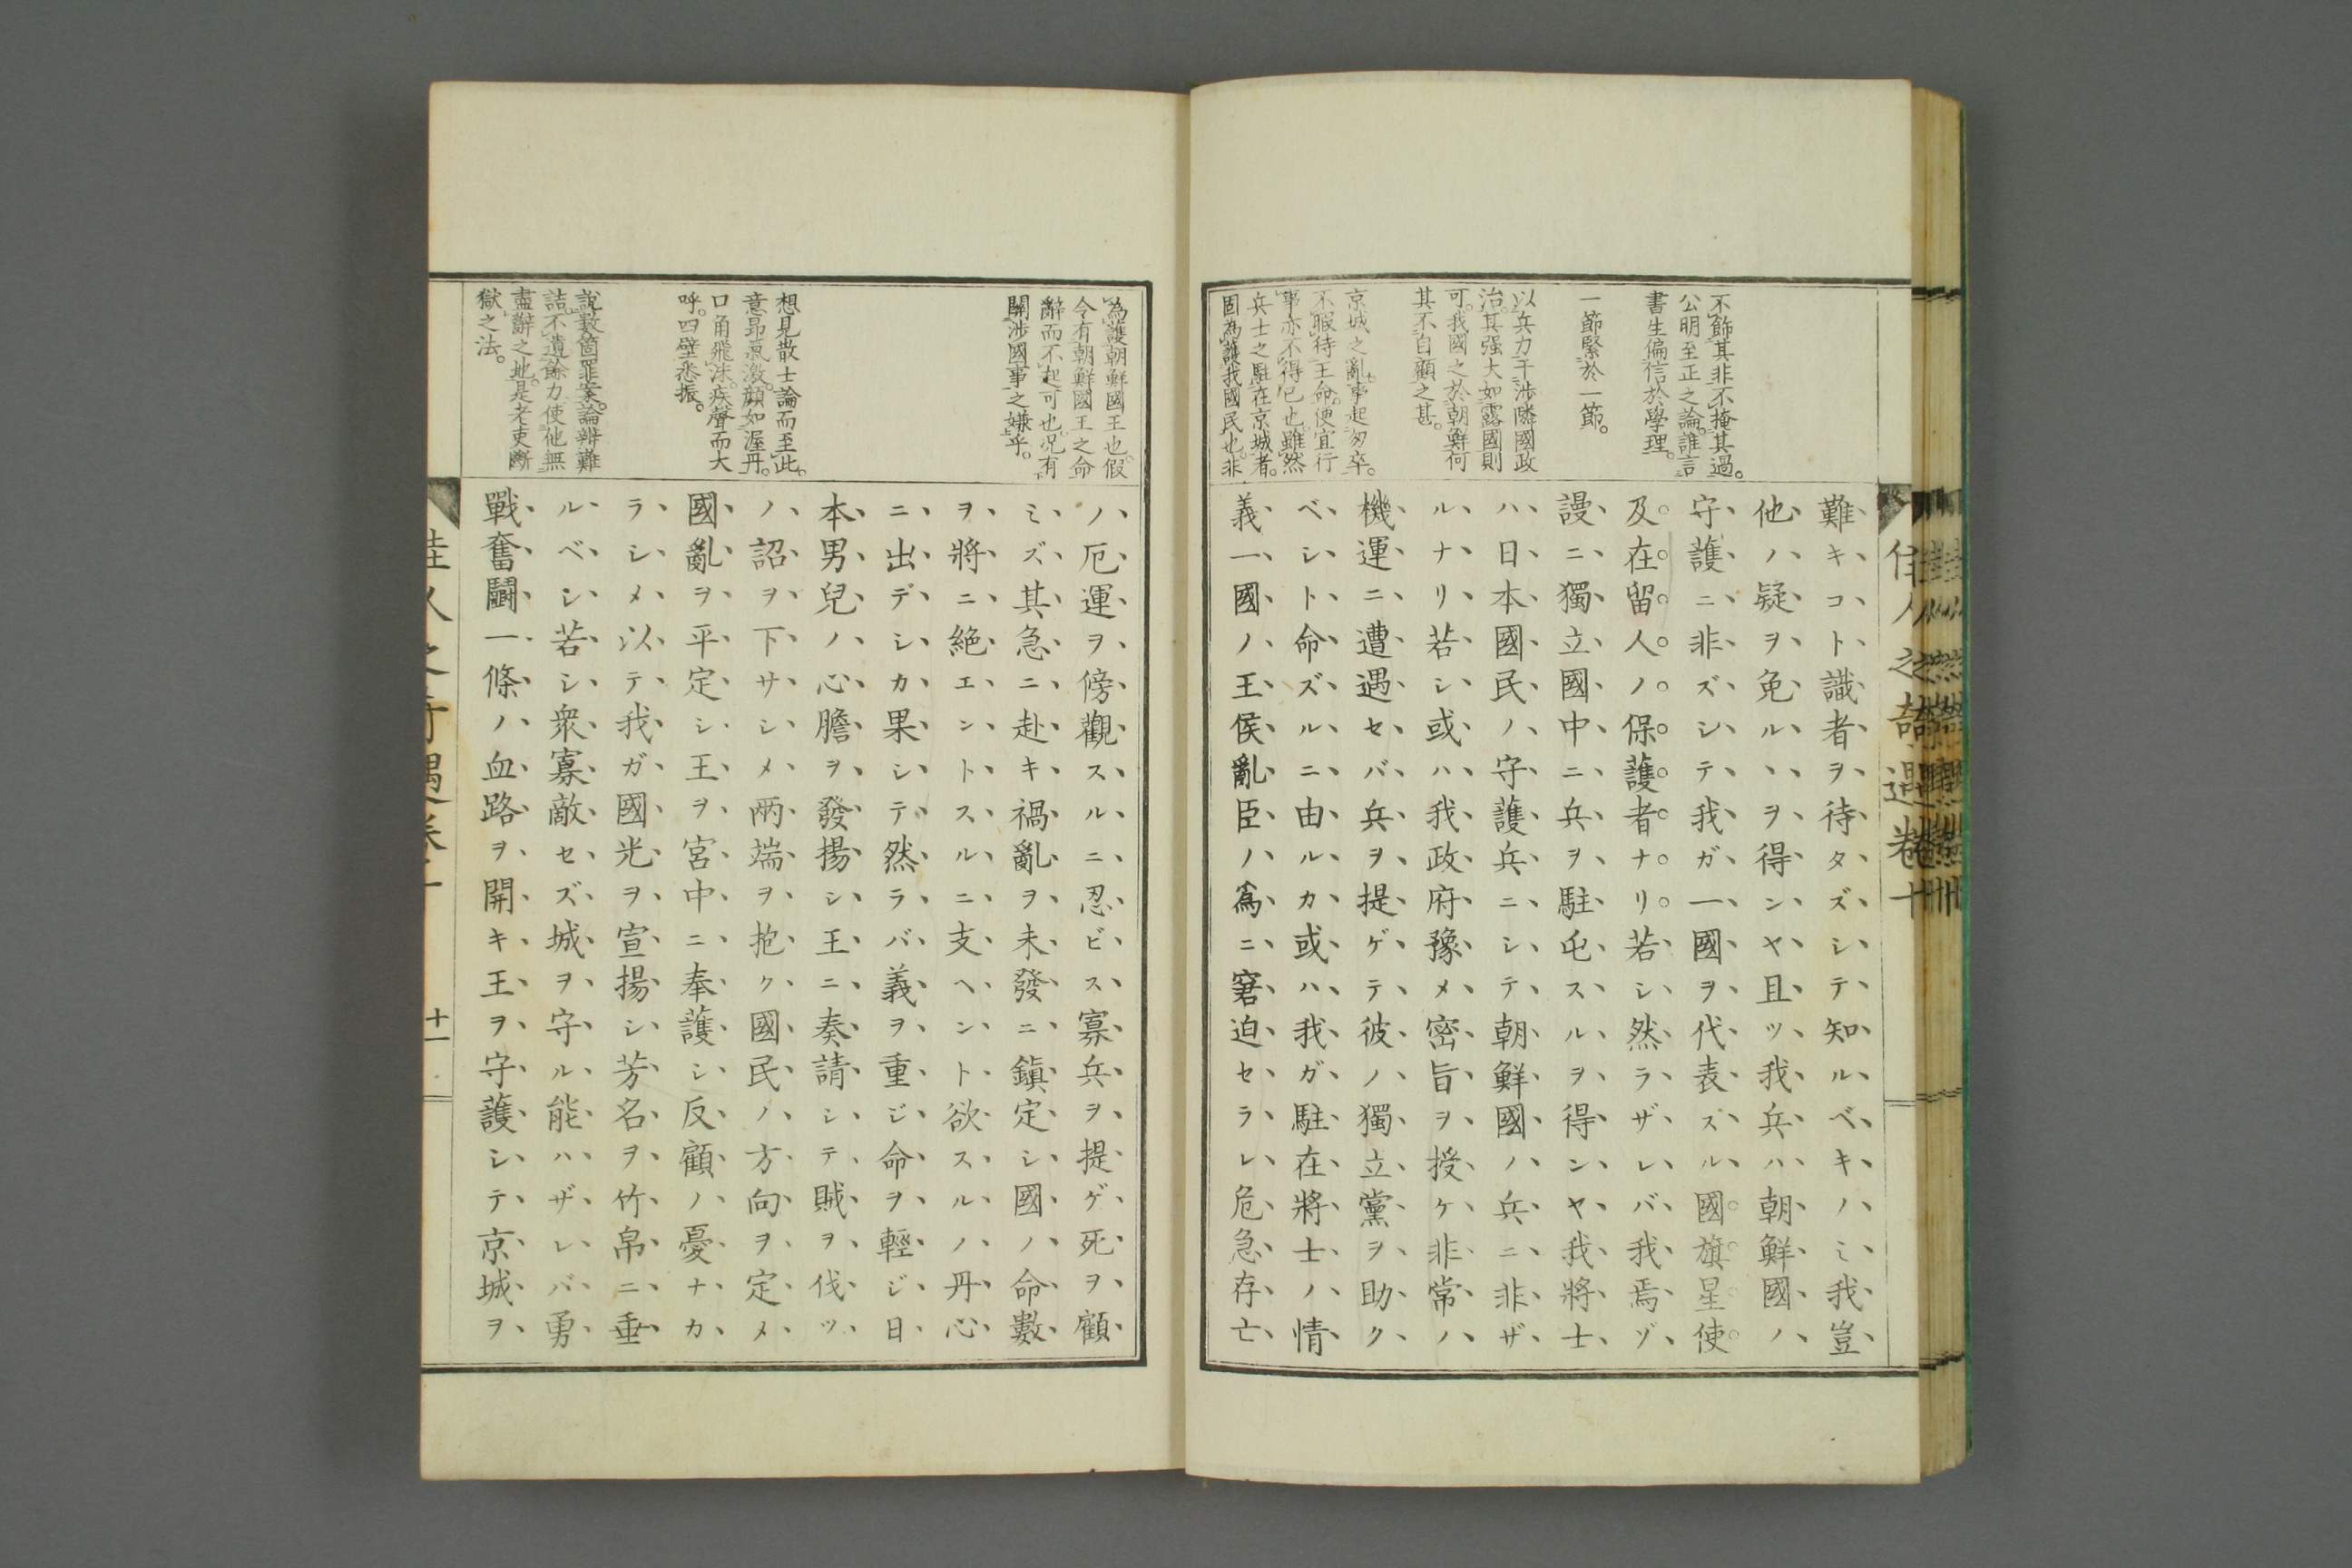 佳人之奇遇卷十
不飾其非不掩其過。
公明至正之論。誰言
書生偏信於學理。
一節緊於一節。
以兵力干涉隣國政
治。其强大如露國則
可。我國之於朝鮮何
其不自顧之甚。
京城之亂。事起匆卒。
不暇待王命。便宜行
事亦不得已也。雖然
兵士之駐在京城者。
固為護我國民也。非
難キコト識者ヲ待タズシテ知ルベキノミ我豈
他ノ疑ヲ免ルヽヲ得ンヤ且ツ我兵ハ朝鮮國ノ
守護ニ非ズシテ我ガ一國ヲ代表スル國旗星使
及在留人ノ保護者ナリ若シ然ラザレバ我焉ゾ
謾ニ獨立國中ニ兵ヲ駐屯スルヲ得ンヤ我將士
ハ日本國民ノ守護兵ニシテ朝鮮國ノ兵ニ非ザ
ルナリ若シ或ハ我政府豫メ密旨ヲ授ケ非常ノ
機運ニ遭遇セバ兵ヲ提ゲテ彼ノ獨立黨ヲ助ク
ベシト命ズルニ由ルカ或ハ我ガ駐在將士ノ情
義一國ノ王侯亂臣ノ爲ニ窘迫セラレ危急存亡
為護朝鮮國王也。假
令有朝鮮國王之命
辭而不起可也。况有
關涉國事之嫌乎。
想見散士論而至此。
意昂氣激。顏如渥丹。
口角飛沫。疾聲而大
呼。四壁悉振。
說數箇罪案。論辨難
詰。不遺餘力。使他無
盡辭之地。是老吏斷
獄之法。
ノ厄運ヲ傍觀スルニ忍ビス寡兵ヲ提ゲ死ヲ顧
ミズ其急ニ赴キ禍亂ヲ未發ニ鎭定シ國ノ命數
ヲ將ニ絕エントスルニ支ヘント欲スルノ丹心
ニ出デシカ果シテ然ラバ義ヲ重ジ命ヲ輕ジ日
本男兒ノ心膽ヲ發揚シ王ニ奏請シテ賊ヲ伐ツ
ノ詔ヲ下サシメ兩端ヲ抱ク國民ノ方向ヲ定メ
國亂ヲ平定シ王ヲ宮中ニ奉護シ反顧ノ憂ナカ
ラシメ以テ我ガ國光ヲ宣揚シ芳名ヲ竹帛ニ垂
ルベシ若シ衆寡敵セズ城ヲ守ル能ハザレバ勇
戰奮鬪一條ノ血路ヲ開キ王ヲ守護シテ京城ヲ
佳人之奇遇卷十
十一